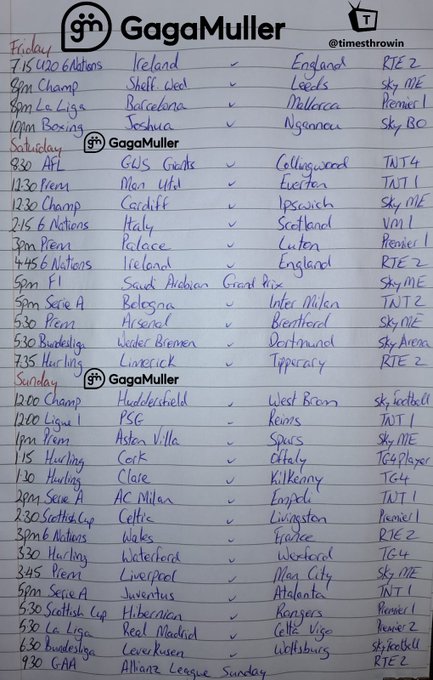 GagaMuller
@timesthrowin
Friday
7.15 U20 6 Nations Ireland v England RTE 2
8pm Champ Sheff Wed v Leeds Sky ME
8pm La Liga Barcelona v Mallorca Premier 1
10pm Boxing Joshua v Ngannou Sky BO
Saturday GagaMuller
8.30 AFL GWS Giants v Collingwood TNT 4
12.30 Prem Man Utd v Everton TNT 1
12.30 Champ Cardiff v Ipswich Sky ME
2.15 6 Nations Italy v Scotland VM 1
3pm Prem Palace v Luton Premier 1
4.45 6 Nations Ireland v England RTE 2
5pm F1 Saudi Arabian Grand Prix Sky ME
5pm Serie A Bologna v Inter Milan TNT 2
5.30 Prem Arsenal v Brentford Sky ME
5.30 Bundesliga Werder Bremen v Dortmund Sky Arena
7.35 Hurling Limerick v Tipperary RTE 2
Sunday GagaMuller
12.00 Champ Huddersfield v West Brom Sky Football
12.00 Ligue 1 PSG v Reims TNT 1
1pm Prem Aston Villa v Spurs Sky ME
1.15 Hurling Cork v Offaly TG4 Player
1.30 Hurling Clare v Kilkenny TG4
2pm Serie A AC Milan v Empoli TNT 1
2.30 Scottish Cup Celtic v Livingston Premier 1
3pm 6 Nations Wales v France RTE 2
3.30 Hurling Waterford v Wexford TG4
3.45 Prem Liverpool v Man City Sky ME
5pm Serie A Juventus v Atalanta TNT 1
5.30 Scottish Cup Hibernian v Rangers Premier 1
5.30 La Liga Real Madrid v Celta Vigo Premier 2
6.30 Bundesliga Leverkusen v Wolfsburg Sky Football
9.30 GAA Allianz League Sunday RTE 2